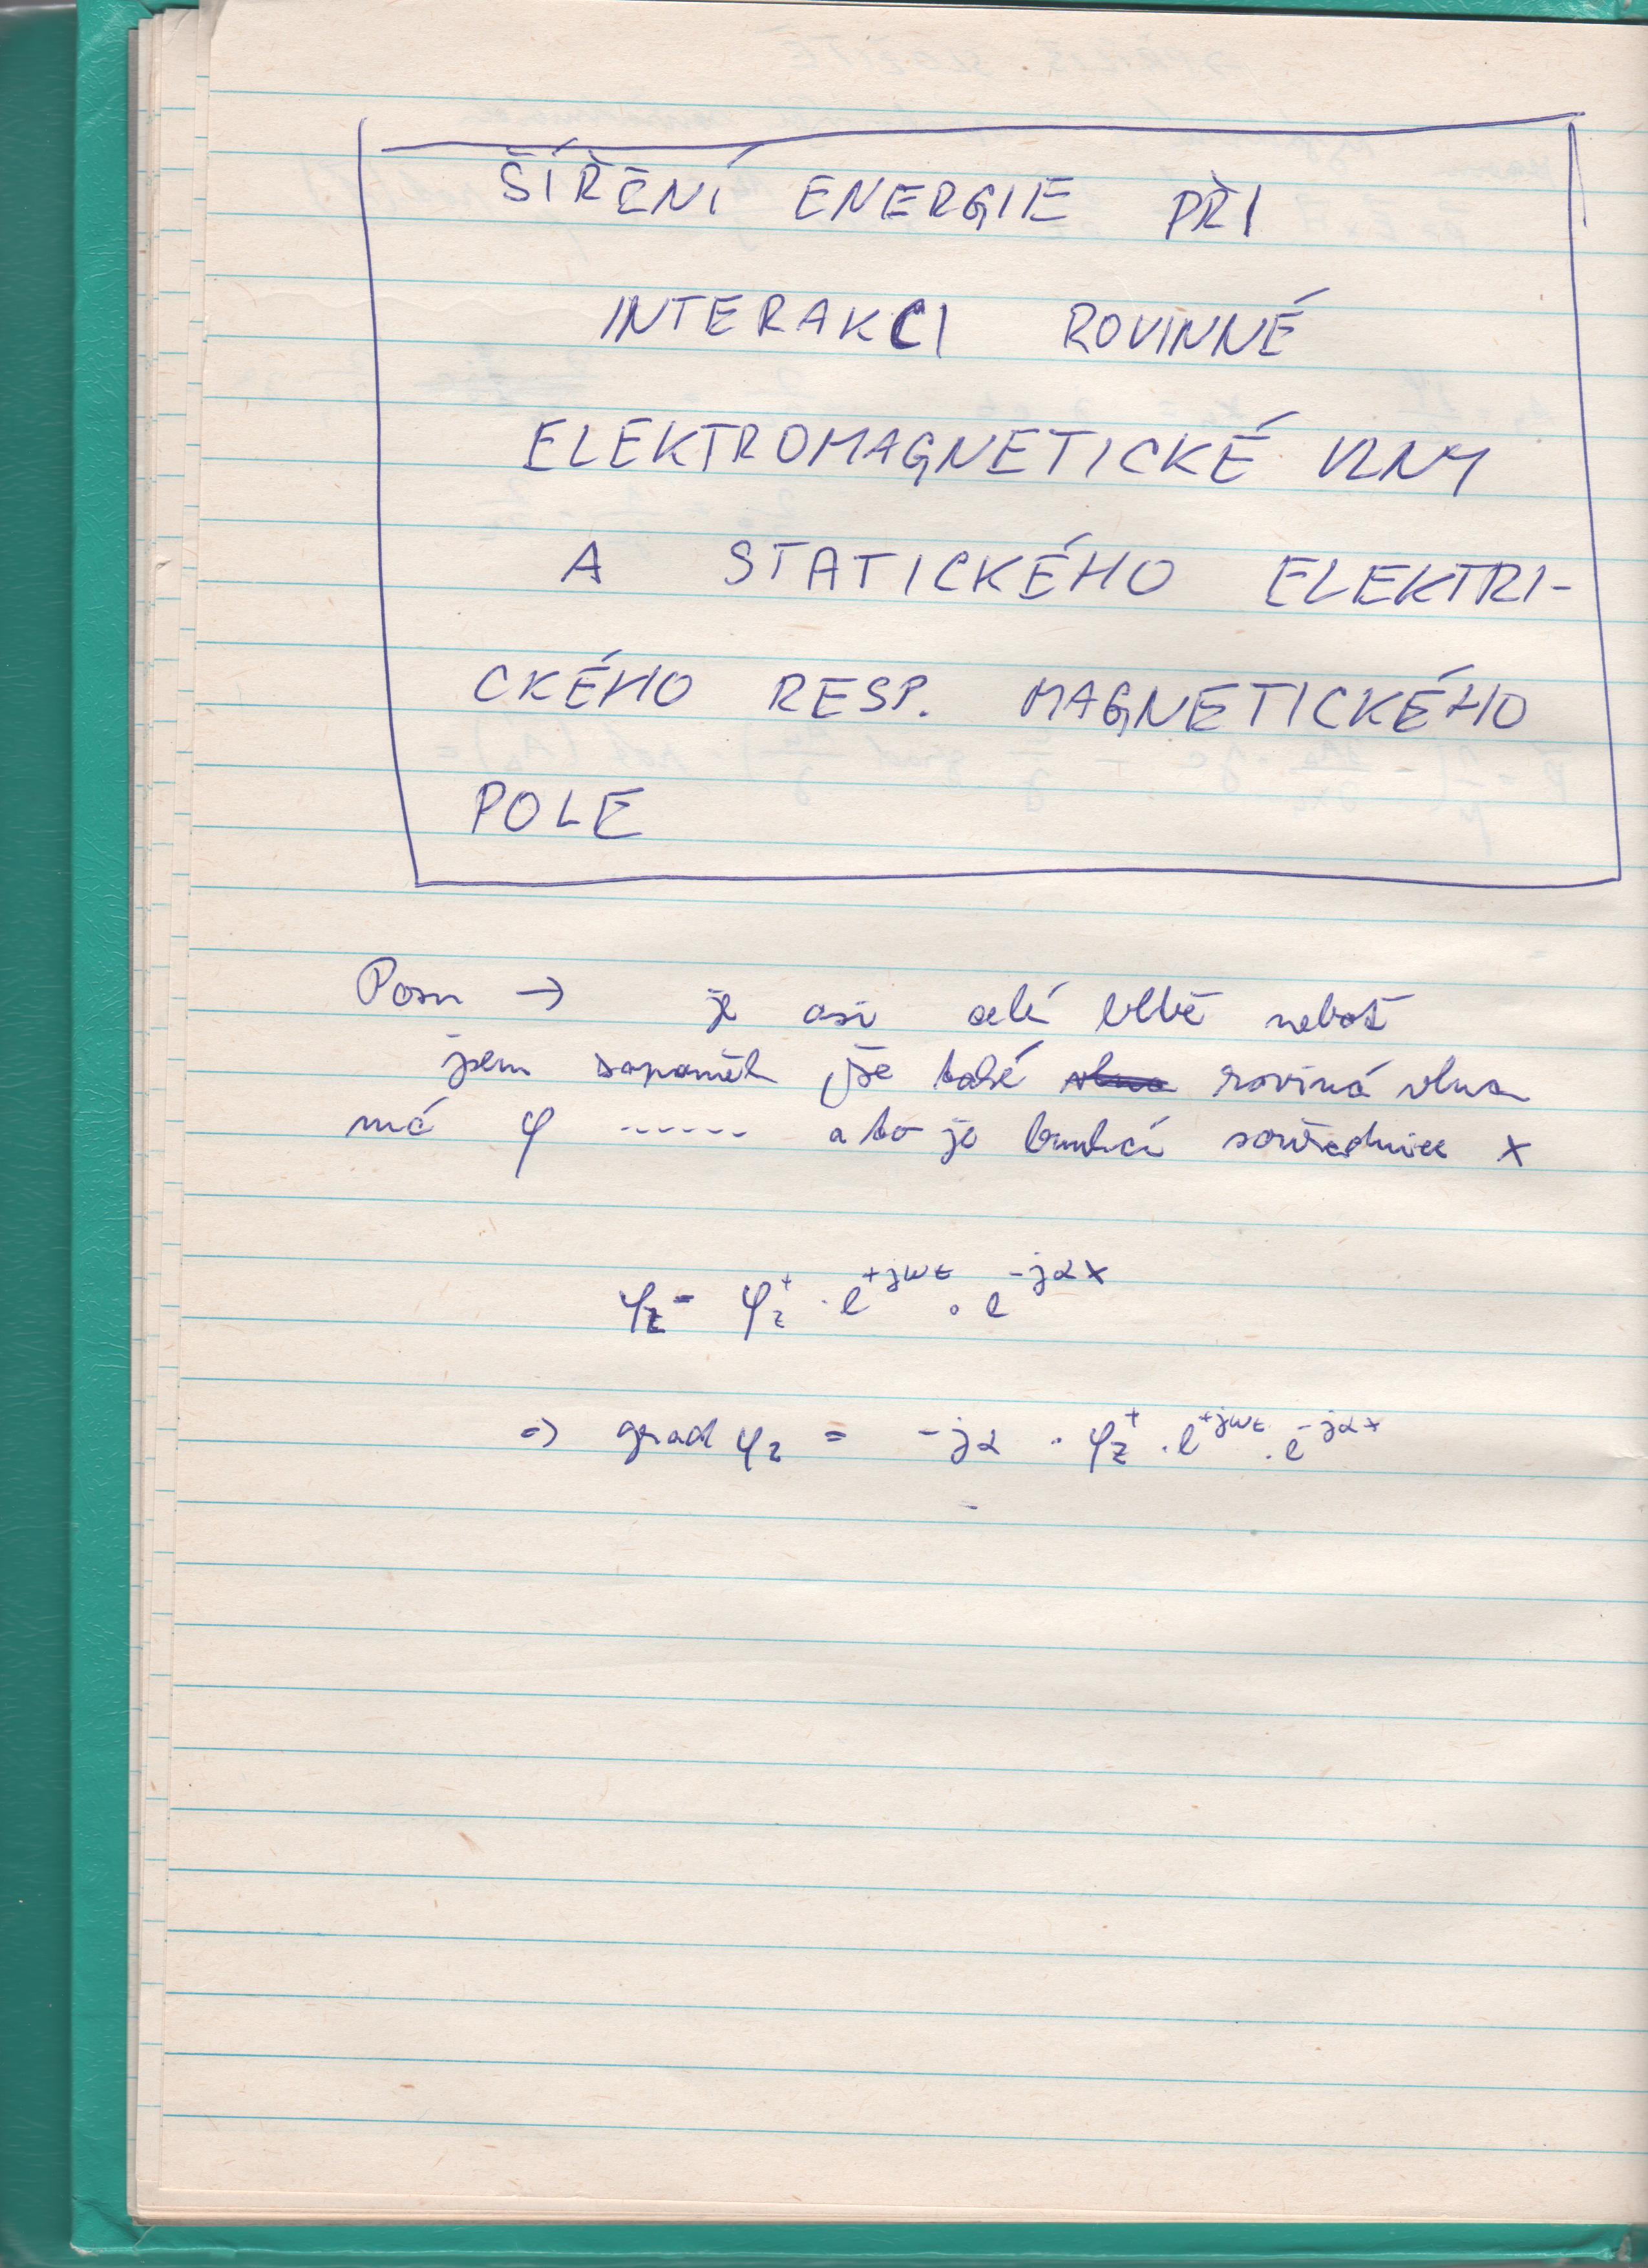 ŠÍŘENÍ ENERGIE PŘI
INTERAKCI ROVINNÉ
ELEKTROMAGNETICKÉ VLNY
A STATICKÉHO ELEKTRI-
CKÉHO RESP. MAGNETICKÉHO
POLE
Pozn → je asi celé blbě neboť
jsem zapoměl že také vlna roviná vlna
má φ ------ a to je funkcí souřadnice x
φz = φz⁺ · e^{+jωt} · e^{-jαx}
⇒ grad φz = -jα · φz⁺ · e^{+jωt} · e^{-jαx}